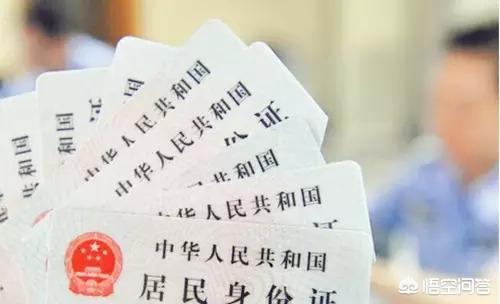 和国
中华人民共和国
份证
中华人民共和国
份证
中华人民共和国
中华人民共和国
居民身份证
悟空问答